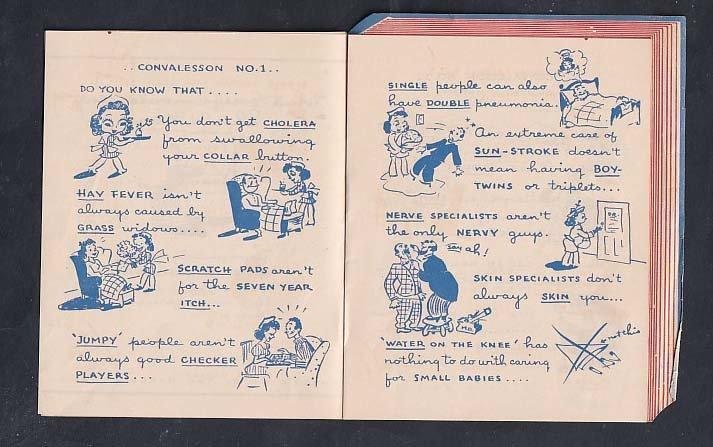 ..CONVALESSON NO.1..
DO YOU KNOW THAT....
You don't get CHOLERA
from swallowing
your COLLAR button.
HAY FEVER isn't
always caused by
GRASS widows....
SCRATCH PADS aren't
for the SEVEN YEAR
ITCH...
'JUMPY' people aren't
always good CHECKER
PLAYERS...
SINGLE people can also
have DOUBLE pneumonia.
An extreme case of
SUN-STROKE doesn't
mean having BOY-
TWINS or triplets...
NERVE SPECIALISTS aren't
the only NERVY guys.
SAY ah!
SKIN SPECIALISTS don't
always SKIN you...
M.D.
'WATER ON THE KNEE' has
nothing to do with caring
for SMALL BABIES....
not this